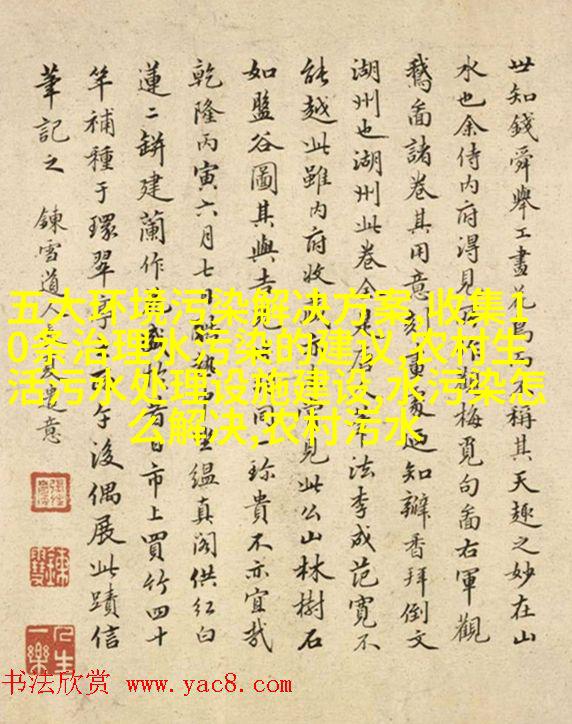 世知錢舜舉工畫花鳥而不稱其天趣之妙在山
水也余侍内府得見所作梅覓句畵右軍觀
鵝畵諸卷其用意刻畫處知瓣香拜倒文
湖州也湖州此卷全是唐人法李成范寬不
能越此雖内府收藏亦罕見此公山林樹石
如盤谷圖其與吉同珍貴不亦宜哉
乾隆丙寅六月七日坐緼真閣供紅白
蓮二缾建蘭作花盛市上買竹四十
竿補種于環翠亭下午後偶展此蹟信
筆記之 鍊雪道人意
五大环境污染解决方案,收集1
0条治理水污染的建议,农村生
活污水处理设施建设,水污染怎
么解决,农村污水
人生一樂
书法欣赏 www.yac8.com